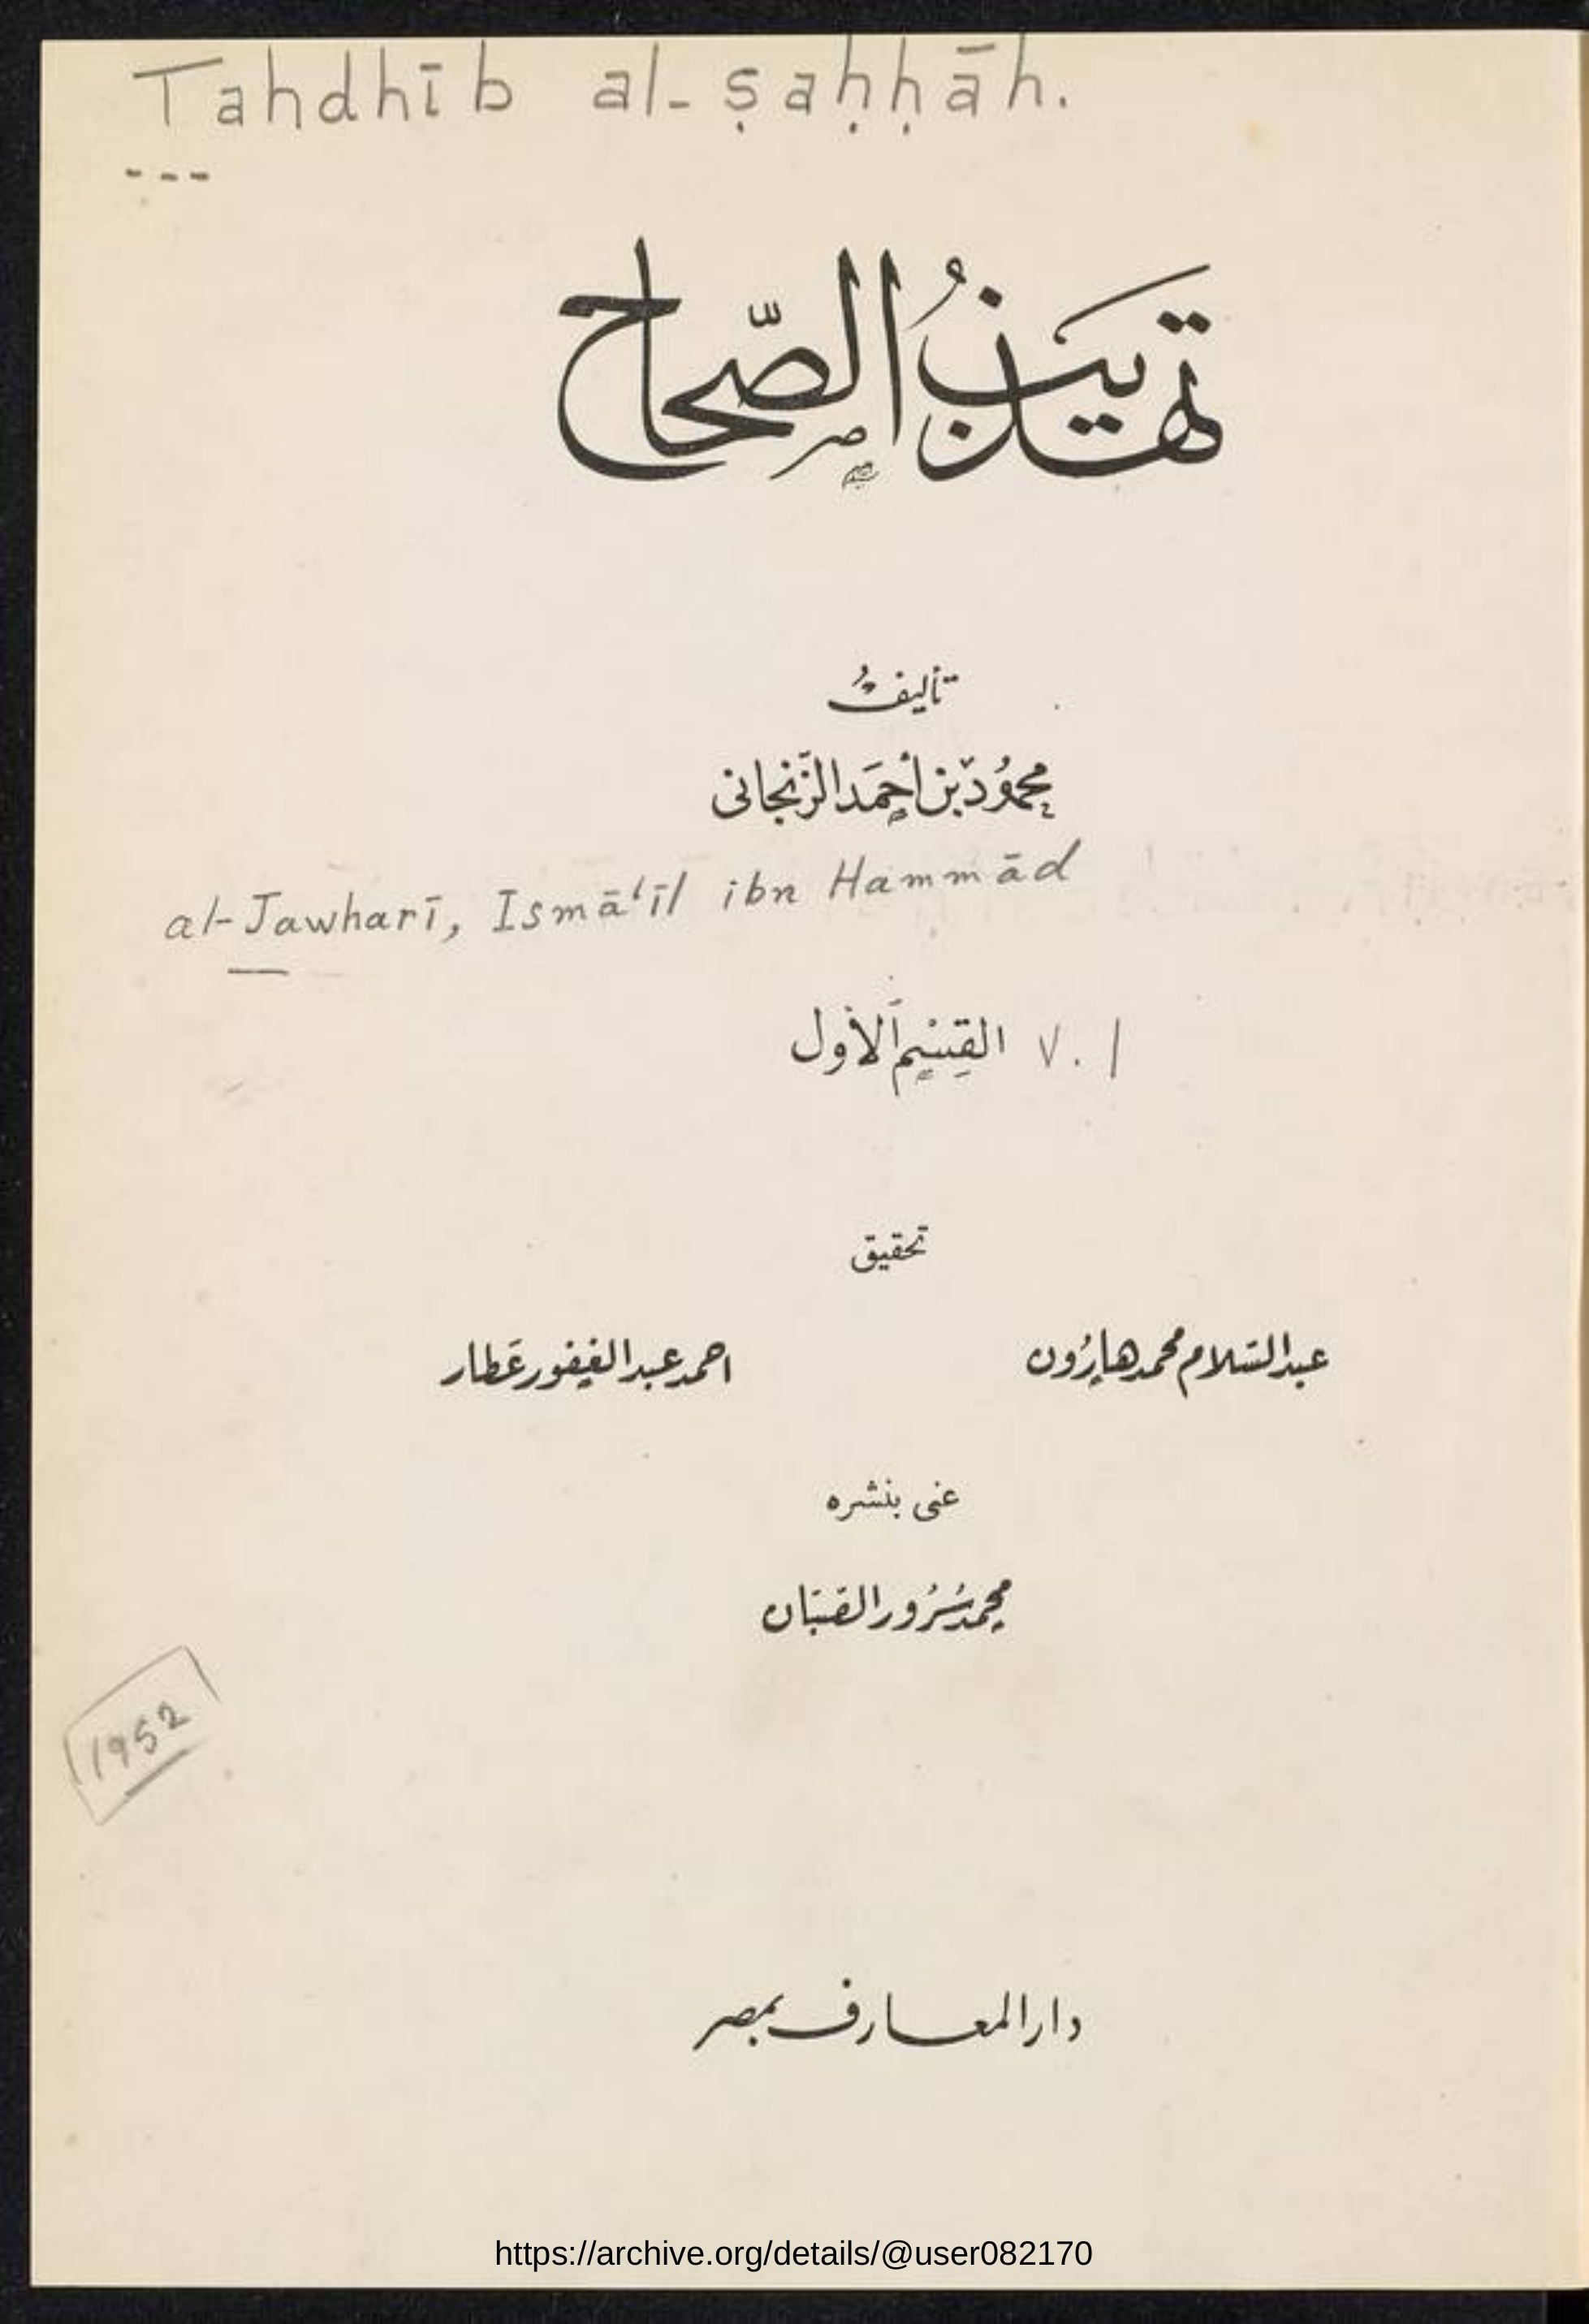 Tahdhīb al-ṣaḥḥāh.
تهذيبُ الصّحاح
تأليفُ
محمُود بن أحمَد الزّنجانى
al-Jawharī, Ismāʿīl ibn Hammād
القِسْم الأول v. 1
تحقيق
عبد السّلام محمد هارُون
احمد عبد الغفور عَطار
عنى بنشره
محمد سُرُور الصّبان
1952
دار المعارف بمصر
https://archive.org/details/@user082170